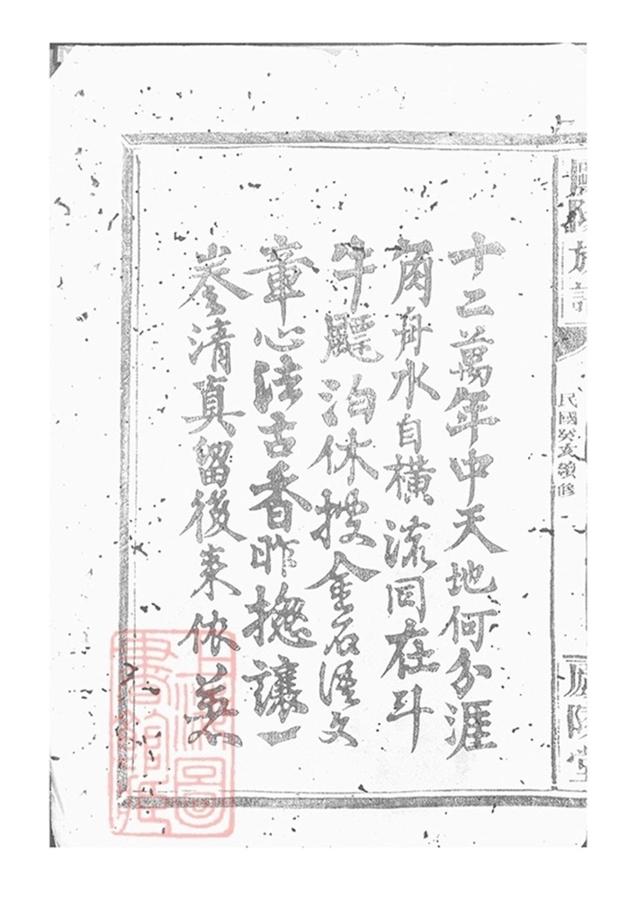 十二萬年中天地何分涯
舟水自橫流同在斗
牛飃泊休搜金石語文
章心法古香昨摠讓一
拳清真留後来依慕
族
民國癸亥續修
廬陵堂
圖書館